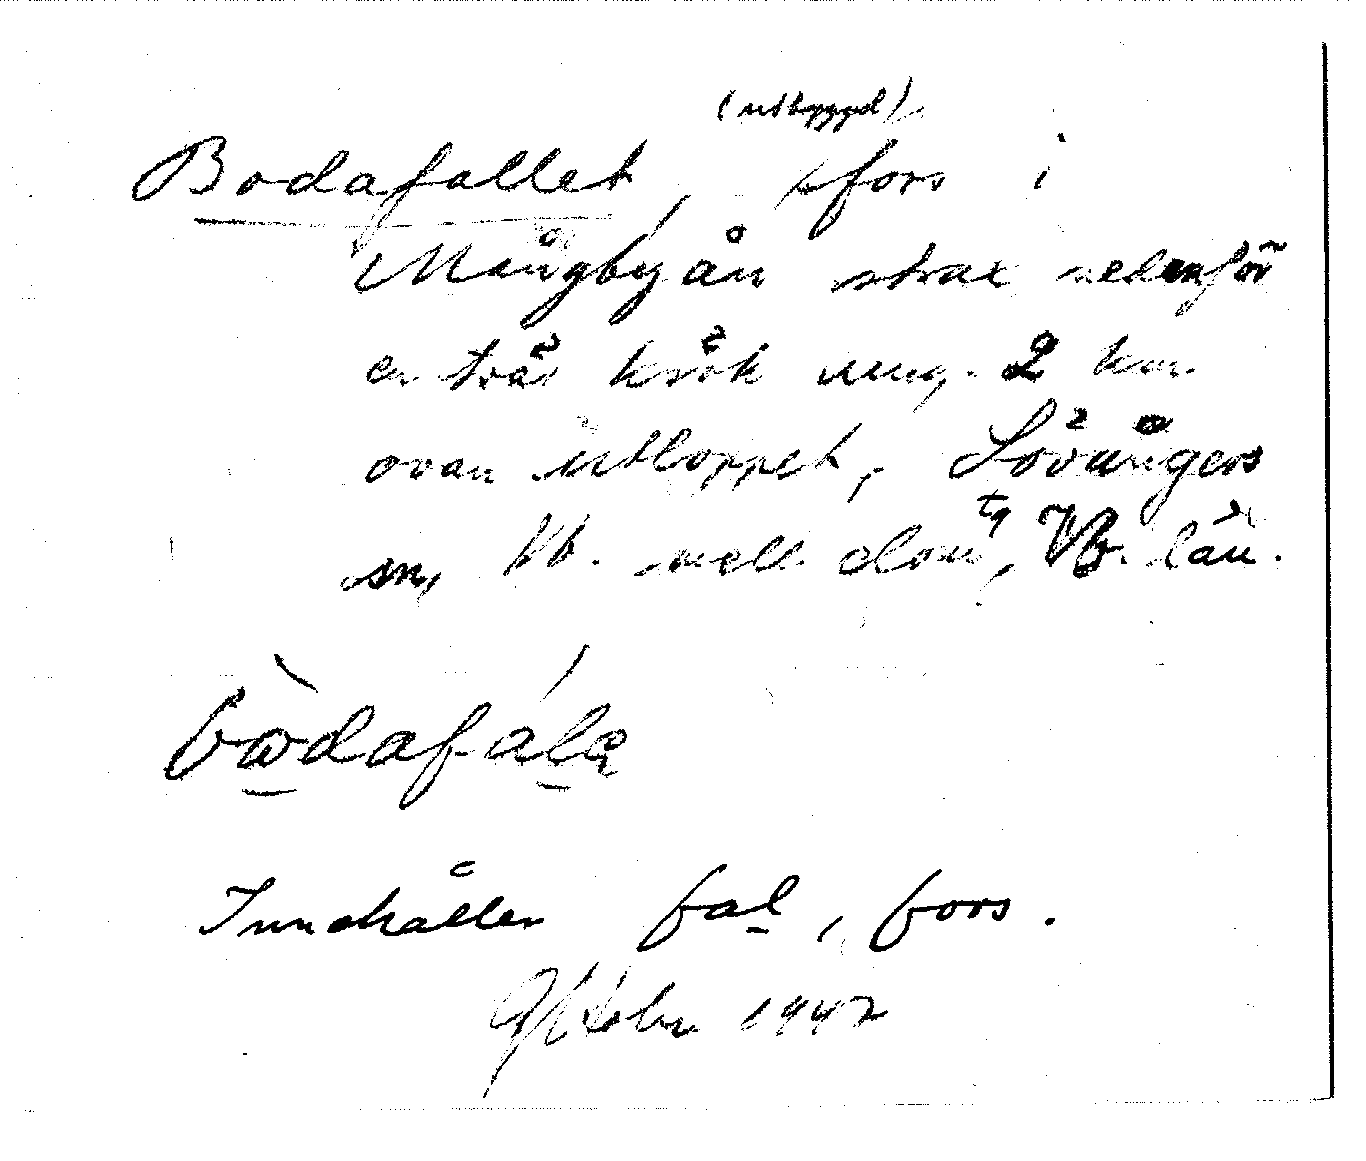 (utloppet)
Bodafallet, fors i
Mångbyån strax nedanför
en tvär krök ung. 2 km
ovan utloppet, Lövångers
sn, Vb. mell. domsg, Vb. län.
bòdafála
Innehåller fal, fors.
Oktober 1942